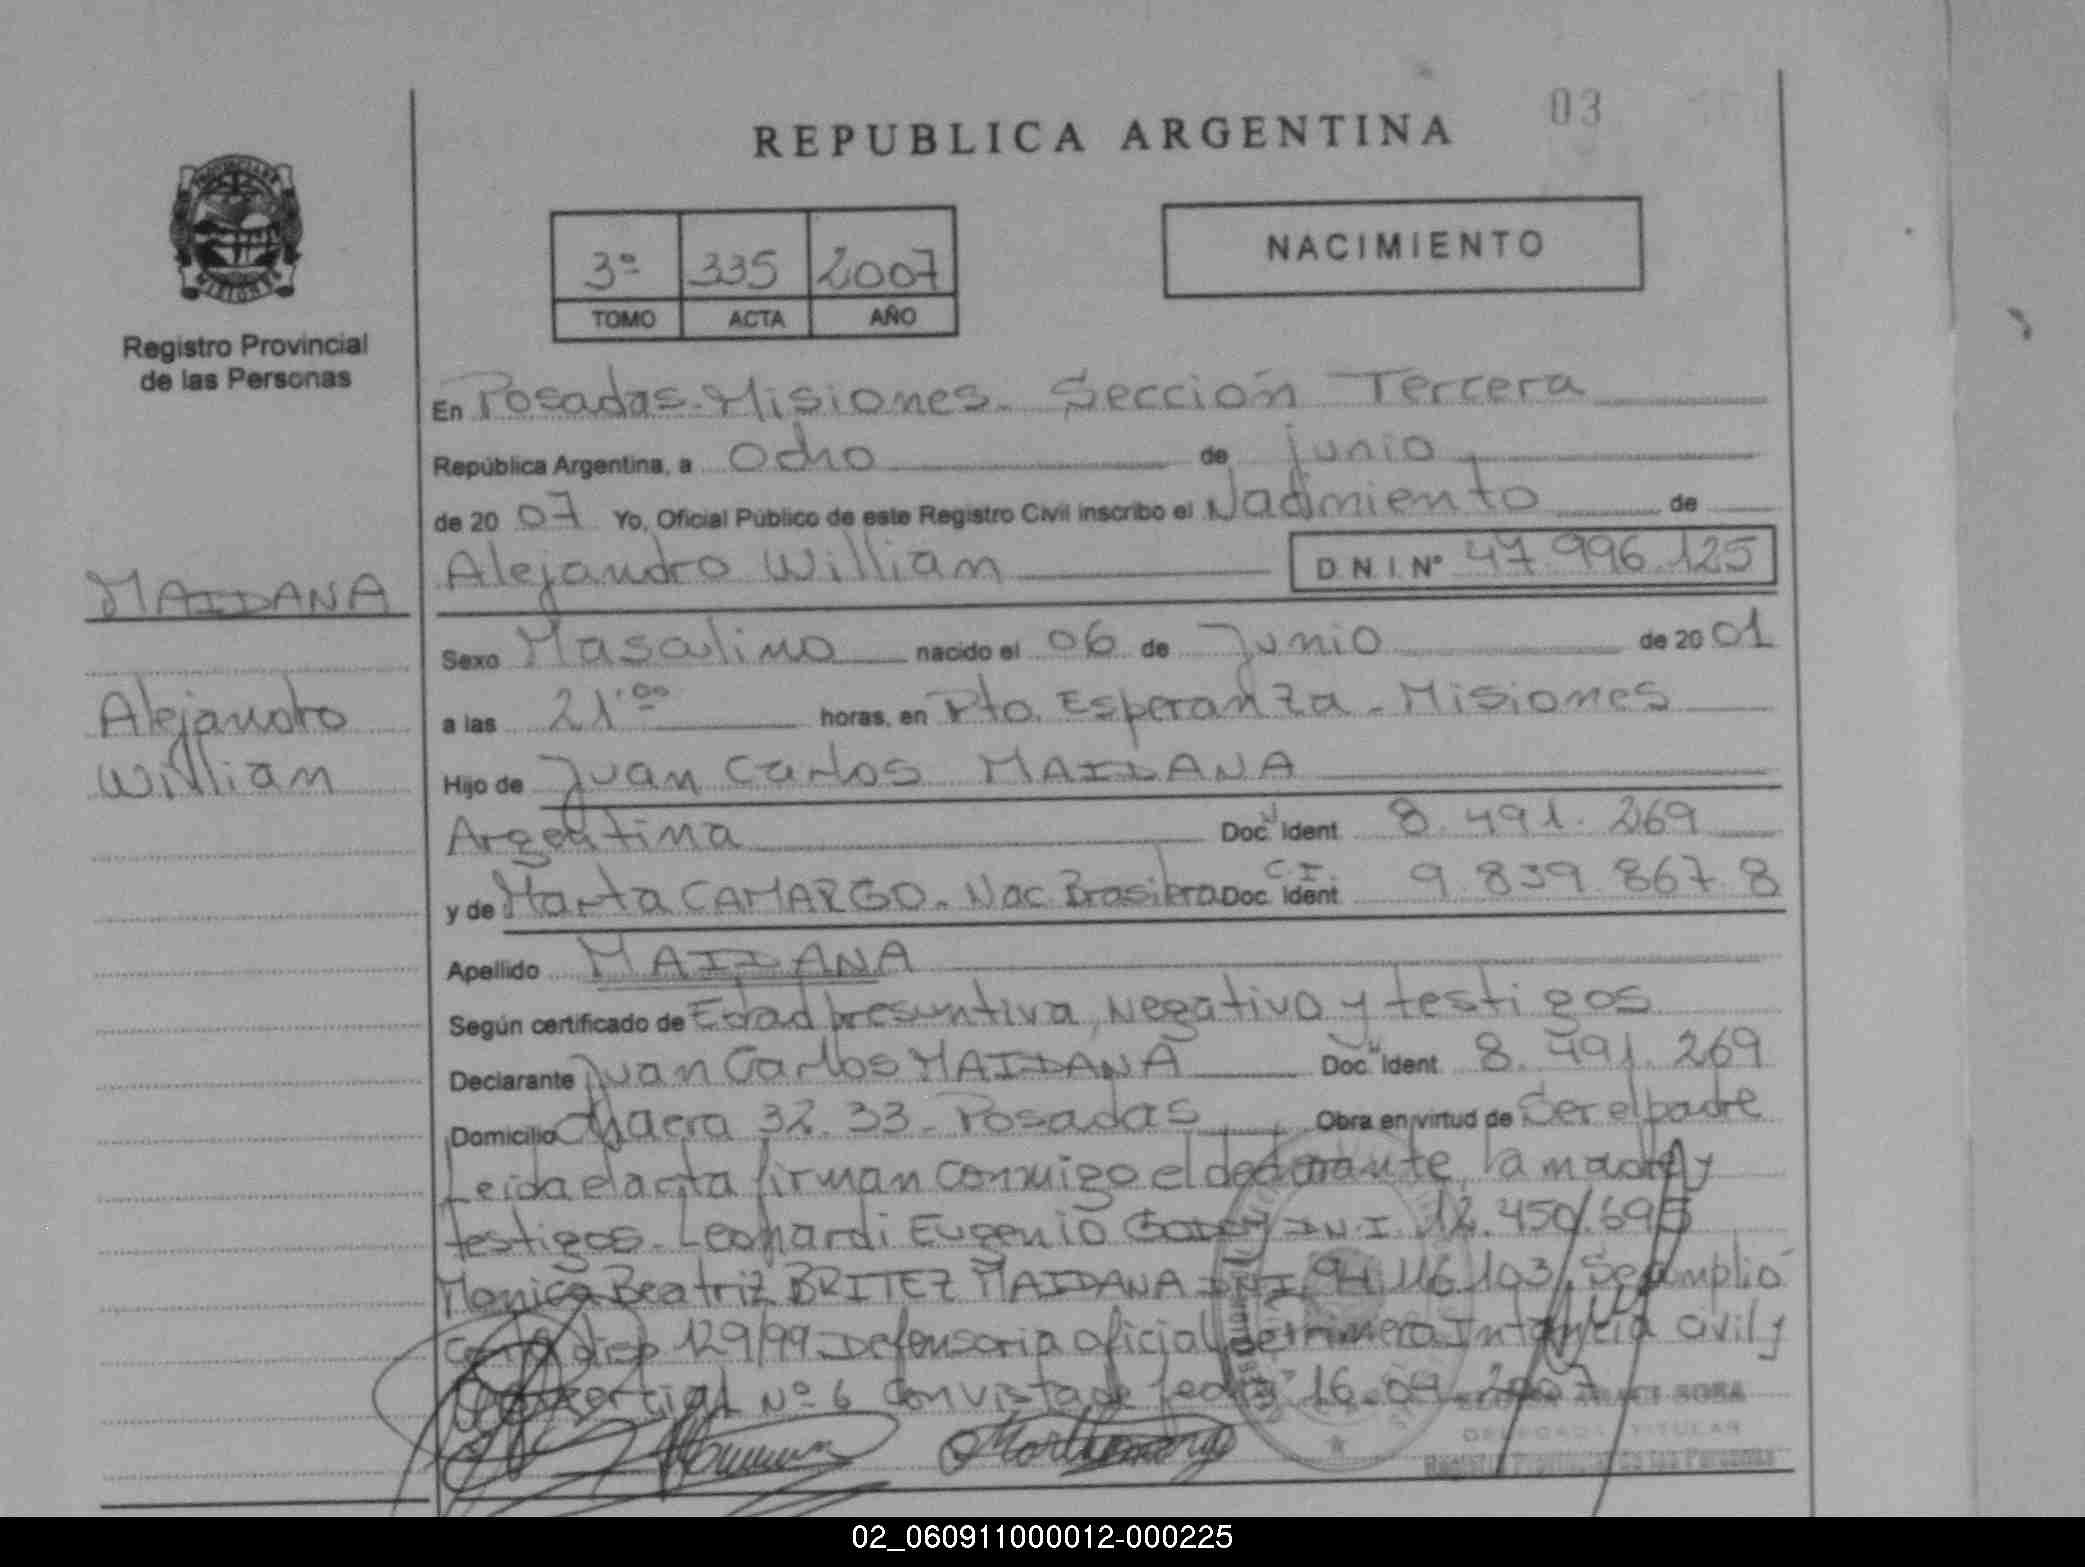 03
REPUBLICA ARGENTINA
PROVINCIA DE
MISIONES
Registro Provincial
de las Personas
3º 335 2007
TOMO ACTA AÑO
NACIMIENTO
En Posadas-Misiones. Sección Tercera
República Argentina, a Ocho de junio
de 20 07 Yo, Oficial Público de este Registro Civil inscribo el Nacimiento de
MAIDANA
Alejandro Willian D.N.I. Nº 47.996.125
Sexo Masculino nacido el 06 de Junio de 20 01
Alejandro
Willian
a las 21:00 horas, en Pto. Esperanza - Misiones
Hijo de Juan Carlos MAIDANA
Argentina Doc. Ident 8.491.269
y de Marta CAMARGO. Nac. Brasilera Doc. C.I. Ident. 9.839.867.8
Apellido MAIDANA
Según certificado de Edad presuntiva, Negativo y testigos
Declarante Juan Carlos MAIDANA Doc. Ident 8.491.269
Domicilio Chacra 32.33 - Posadas Obra en virtud de Ser el padre
Leida el acta firman conmigo el declarante, la madre y
testigos. Leonardi Eugenio GODOY D.N.I. 12.450.695
Monica Beatriz BRITEZ MAIDANA DNI 94.116.103. Se cumplió
con la disp 129/99 Defensoria oficial de Primera Intancia Civil y
Comercial Nº 6 Con vista de fecha 16.04.2007
SOSA
DELEGADA TITULAR
Registro Provincial de las Personas
02_060911000012-000225